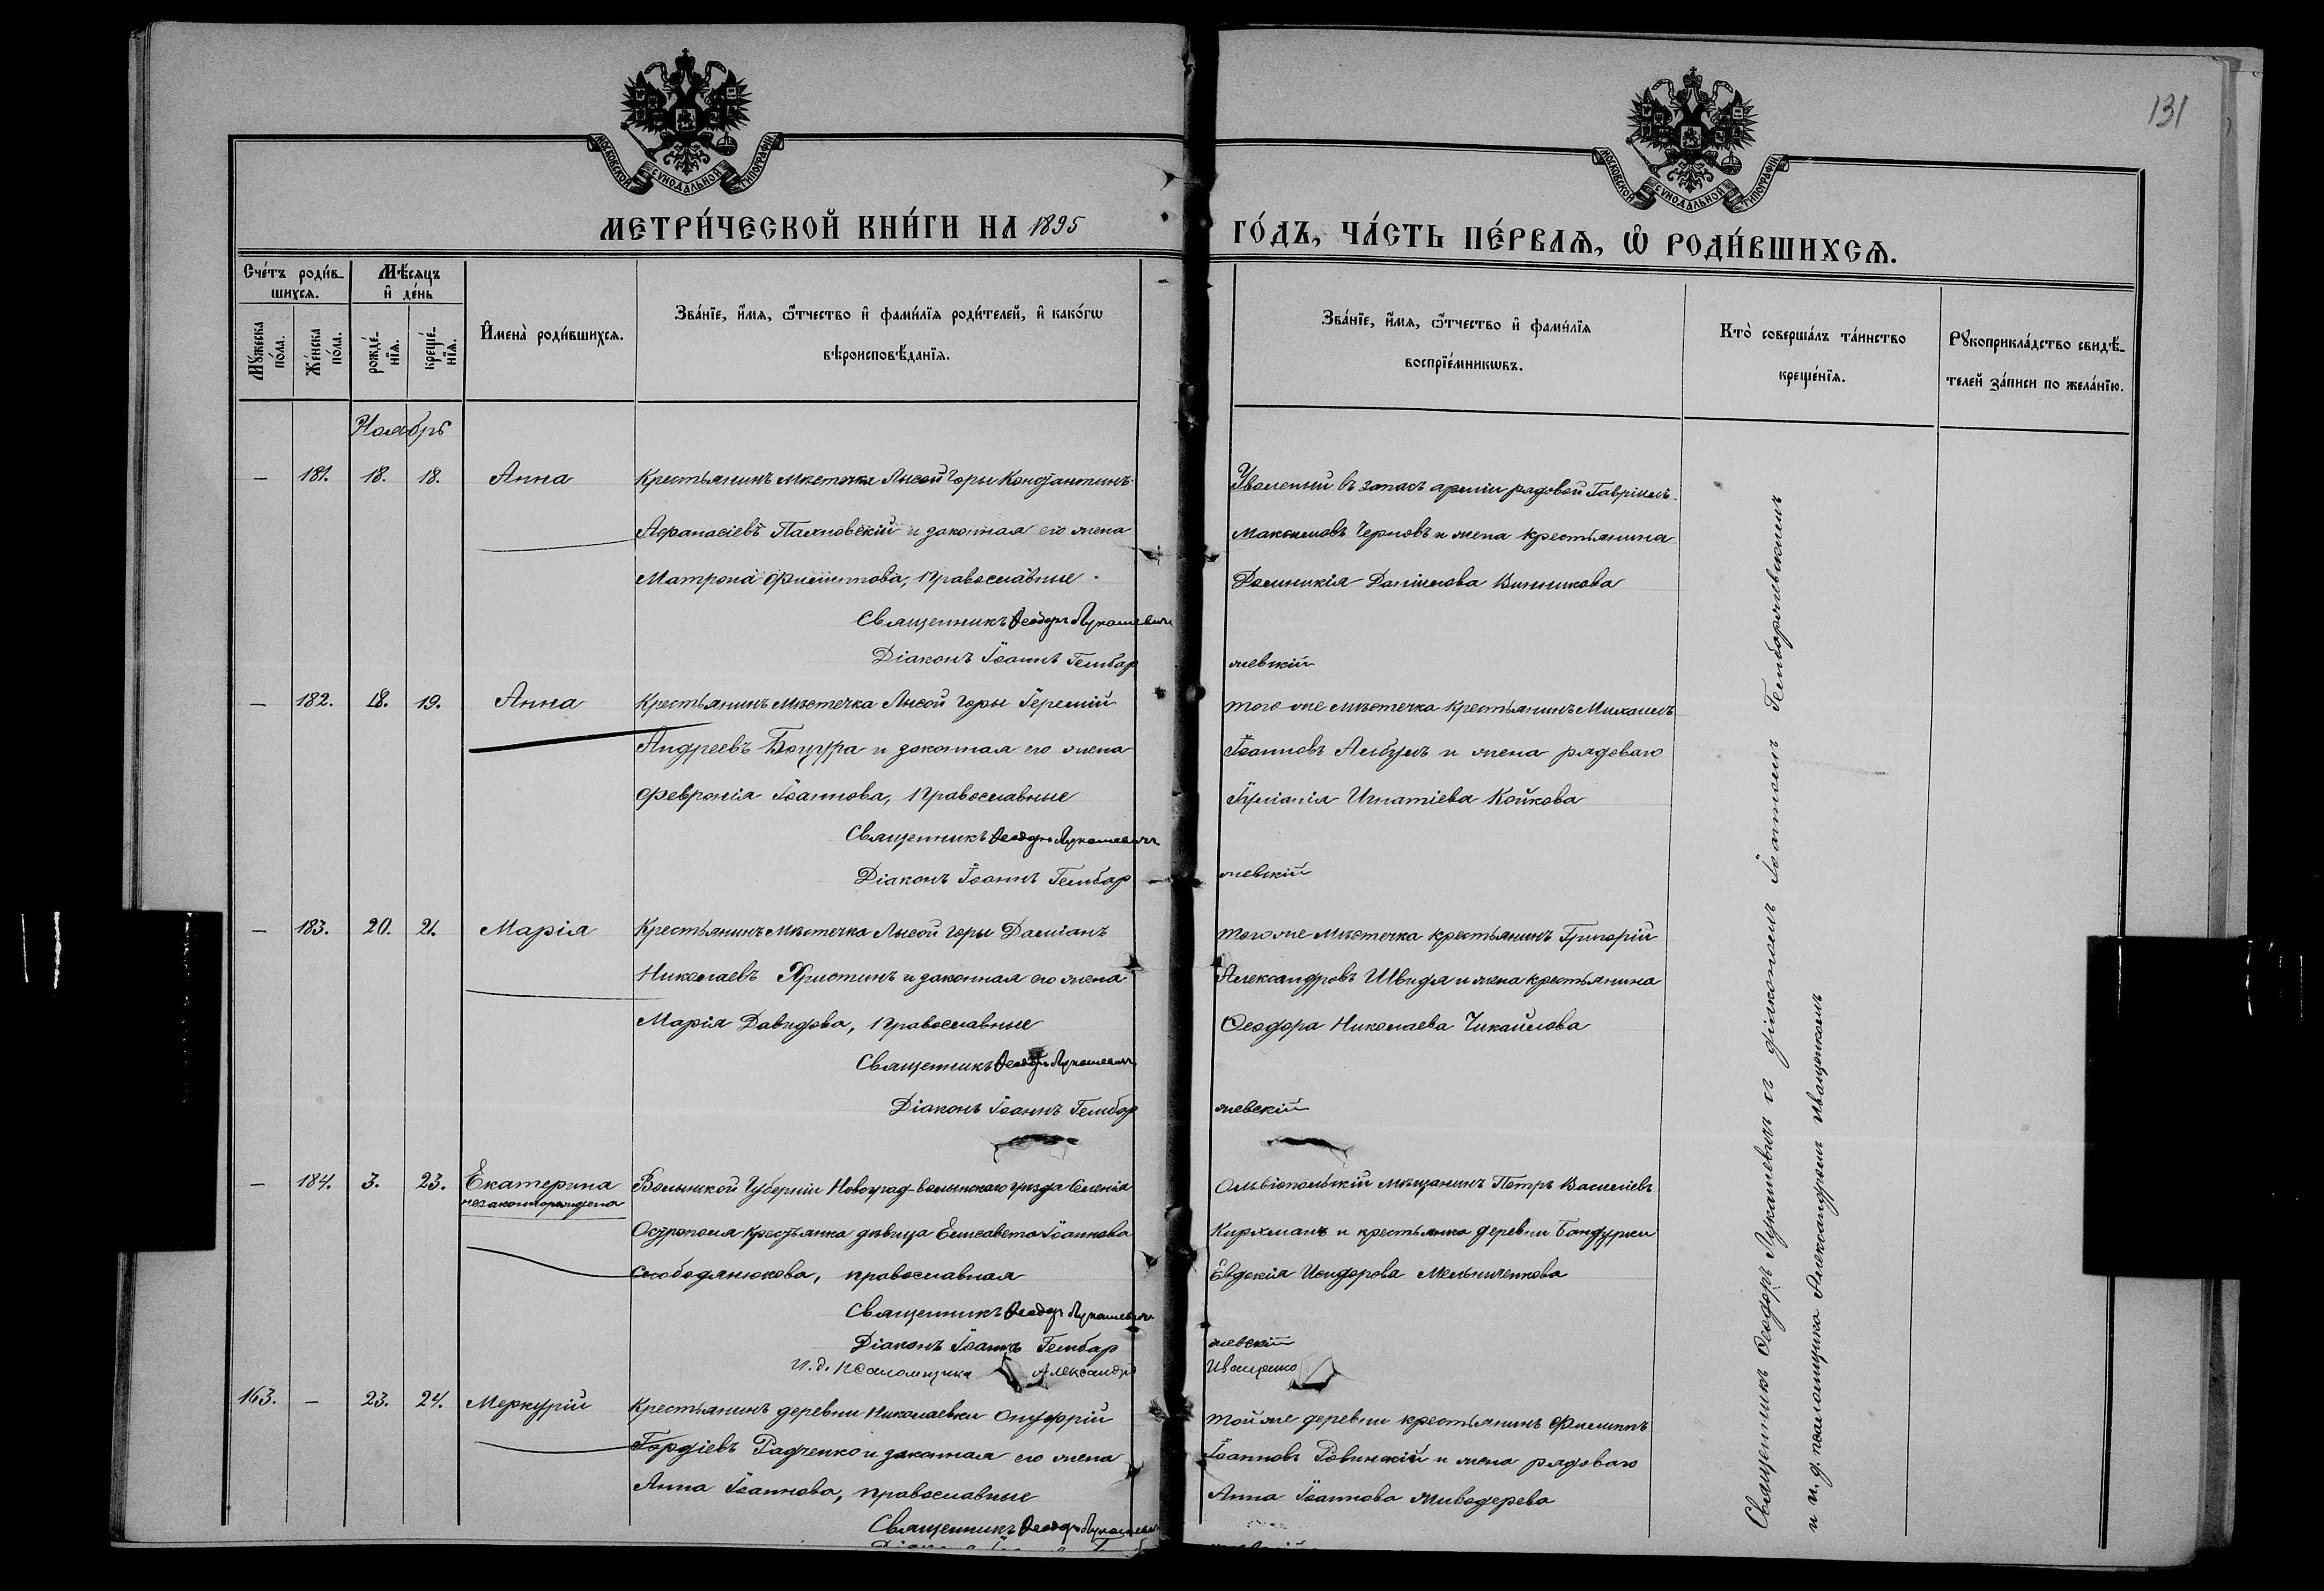 131
МОСКОВСКОЙ СѴНОДАЛЬНОЙ ТИПОГРАФІИ
МОСКОВСКОЙ СѴНОДАЛЬНОЙ ТИПОГРАФІИ
МЕТРИ́ЧЕСКОЙ КНИ́ГИ НА 1895
ГО́ДЪ, ЧА́СТЬ ПЕ́РВАѦ, Ѡ҆ РОДИ́ВШИХСѦ.
Сче́тъ роди́в-
шихсѧ.
Мꙋ́жеска по́ла.
Же́нска по́ла.
Мѣ́сѧцъ
и҆ де́нь
рожде́-
нїѧ.
креще́-
нїѧ.
И҆мена̀ роди́вшихсѧ.
Зва́нїе, и҆́мѧ, ѻ҆́тчество и҆ фами́лїѧ роди́телей, и҆ како́гѡ
вѣроисповѣ́данїѧ.
Зва́нїе, и҆́мѧ, ѻ҆́тчество и҆ фами́лїѧ
воспрїе́мникѡвъ.
Кто̀ соверша́лъ та́инство
креще́нїѧ.
Рꙋкоприкла́дство свидѣ́-
телей за́писи по жела́нїю.
Ноябрь
— 181. 18. 18. Анна
Крестьянинъ мѣстечка Лысой Горы Константинъ
Афанасіевъ Паляновскій и законная его жена
Матрона Филиппова, православные.
Священникъ Ѳеодоръ Лукашевичъ
Діаконъ Іоаннъ Гембар
Уволеный въ запасъ арміи рядовой Гавріилъ
Максимовъ Черновъ и жена крестьянина
Домникія Даніилова Винникова
жевскій
— 182. 18. 19. Анна
Крестьянинъ мѣстечка Лысой Горы Іеремій
Андреевъ Боцура и законная его жена
Февронія Іоаннова, православные
Священникъ Ѳеодоръ Лукашевичъ
Діаконъ Іоаннъ Гембар
того же мѣстечка крестьянинъ Михаилъ
Іоанновъ Албулъ и жена рядоваго
Іуліанія Игнатіева Койкова
жевскій
— 183. 20. 21. Марія
Крестьянинъ мѣстечка Лысой Горы Даміанъ
Николаевъ Христинъ и законная его жена
Марія Давидова, православные
Священникъ Ѳеодоръ Лукашевичъ
Діаконъ Іоаннъ Гембар
того же мѣстечка крестьянинъ Григорій
Александровъ Швидя и жена крестьянина
Ѳеодора Николаева Чикайлова
жевскій
— 184. 3. 23. Екатерина
незаконнорождена
Волынской Губерніи Новоград-волынскаго уѣзда селенія
Острополя крестьянка дѣвица Елисавета Іоаннова
Слободянюкова, православная
Священникъ Ѳеодоръ Лукашевичъ
Діаконъ Іоаннъ Гембар
И. д. псаломщика Александръ
Ольвіопольскій мѣщанинъ Петръ Василіевъ
Кирхманъ и крестьянка деревни Бандурки
Евдокія Исидорова Мельниченкова
жевскій
Иващенко
163. — 23. 24. Меркурій
Крестьянинъ деревни Николаевки Онуфрій
Гордіевъ Радченко и законная его жена
Анна Іоаннова, православные
Священникъ Ѳеодоръ Лукашевичъ
той же деревни крестьянинъ Филиппъ
Іоанновъ Ровинскій и жена рядоваго
Анна Іоаннова Живодерева
Священникъ Ѳеодоръ Лукашевичъ съ діакономъ Іоанномъ Гембаржевскимъ
и и. д. псаломщика Александромъ Иващенкомъ